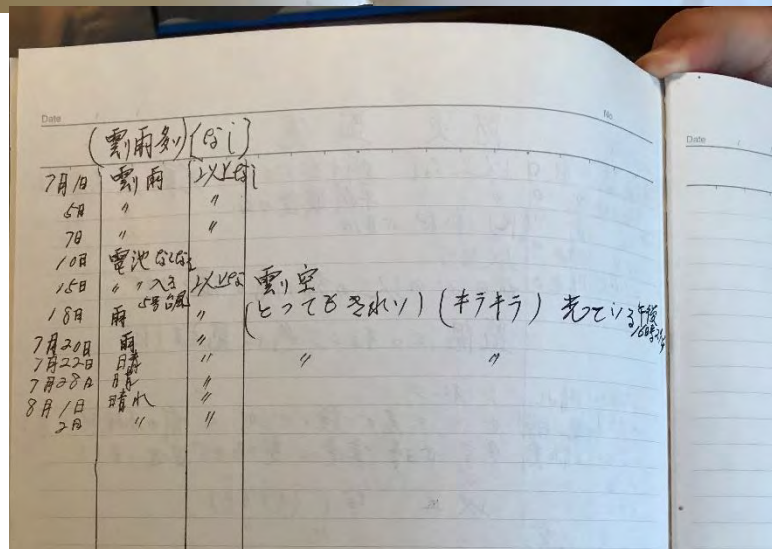 Date No. Date
(雲雨多し) (なし)
7月1日 雲雨 以上なし
5日 〃 〃
7日 〃 〃
10日 電池なくなる
15日 〃 〃入る 以上な 雲り空
18日 雨 5号台風 〃 (とってもきれい) (キラキラ) 光っている 午後
7月20日 雨 〃
7月22日 晴 〃 〃 〃
7月28日 晴 〃
8月1日 晴れ 〃
2日 〃 〃